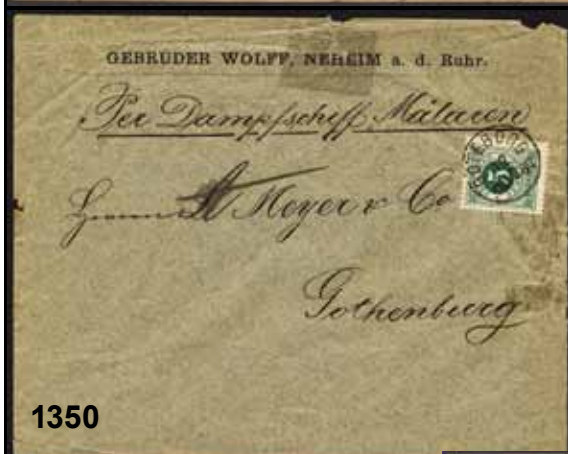 GEBRÜDER WOLFF, NEHEIM a. d. Ruhr.
Per Dampfschiff Mälaren
GÖTEBORG
5
Meyer & Co
Gothenburg
1350